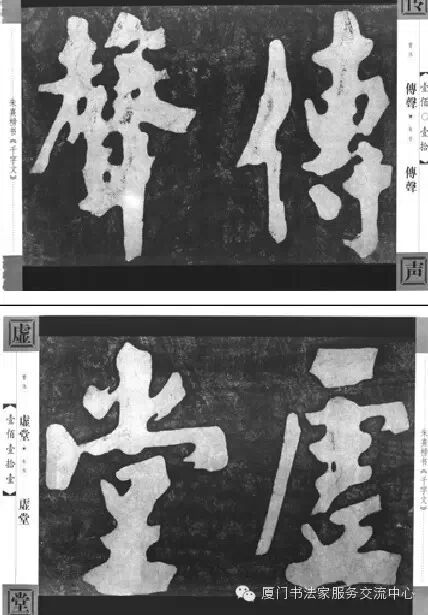 傳聲
傳
声
傳聲
傳聲
壹佰〇壹拾
朱熹楷书《千字文》
虛堂
虚
堂
虛堂
虛堂
壹佰壹拾壹
朱熹楷书《千字文》
厦门书法家服务交流中心